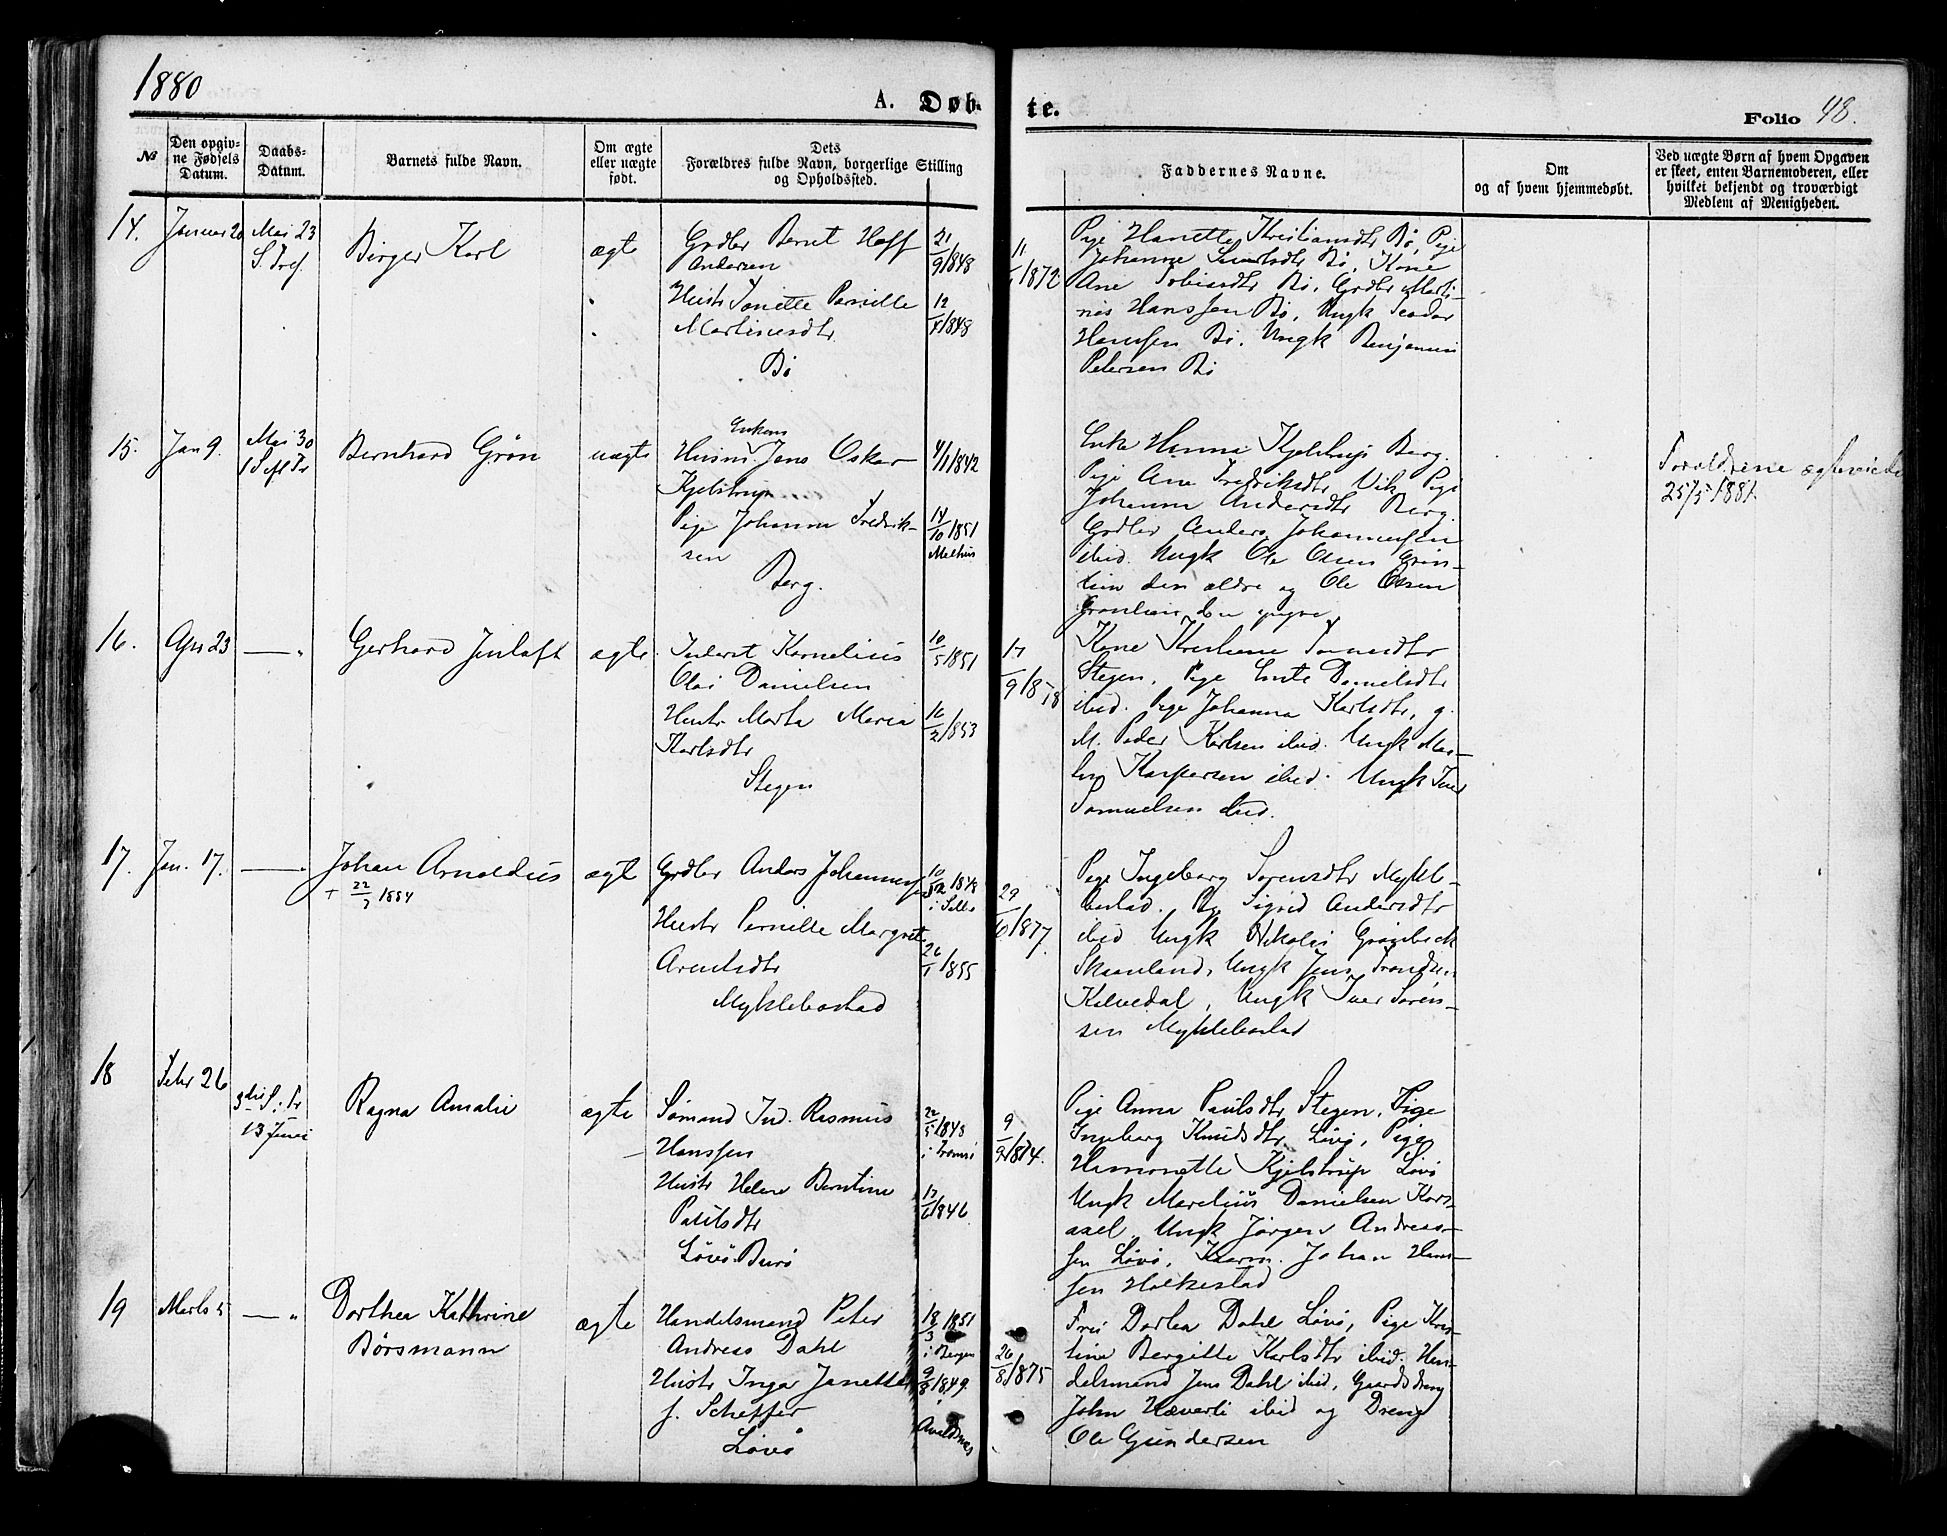 1880
A. Døb-
te.
Folio 48.
№
Den opgiv-
ne Fødsels
Datum.
Daabs-
Datum.
Barnets fulde Navn.
Om ægte
eller uægte
født.
Dets
Forældres fulde Navn, borgerlige Stilling
og Opholdssted.
Faddernes Navne.
Om
og af hvem hjemmedøbt.
Ved uægte Børn af hvem Opgaven
er skeet, enten Barnemoderen, eller
hvilket bekjendt og troværdigt
Medlem af Menigheden.
14.
Januar 20
Mai 23
S. Tref.
Birger Karl
ægte
Grdbr Bernt Hoff
Andersen
Hustr Tonette Pernille
Martinusdtr
Bø
21/9 1848
12/4 1848
11/ 1872
Pige Hanette Kristiansdtr Bø, Pige
Johanne Bø, Kone
Ane Tobiasdtr Bø, Grdbr Marti-
nus Hanssen Bø, Ungk Teodor
Hansen Bø, Ungk Benjamin
Petersen Bø
15.
Jan 9.
Mai 30
1 S eft Tr
Bernhard Grøn
uægte
Enkem
Husm. Jens Oskar
Kjelstrup
Pige Johanna Fredrik-
sen
Berg.
4/1 1842
14/10 1851
Melhus
Enke Hanna Kjelstrup Berg.
Pige Ane Fredriksdtr Vik, Pige
Johanna Andersdtr Berg.
Grdbr Anders Johannessen
ibid. Ungk Ole Olsen Grøn-
lien den ældre og Ole Olsen
Grønlien den yngre
Forældrene ægteviede
25/5 1881
16.
Apr 23
— "
Gerhard Jenloft
ægte
Inderst Kornelius
Olai Danielsen
Hustr Marta Maria
Karlsdtr
Stegen
10/5 1851
16/2 1853
17/9 1878
Kone Kristiane
Stegen, Pige Danielsdtr
ibid. Pige Johanna Karlsdtr, g.
M. Peder Karlsen ibid. Ungk Mar-
Kaspersen ibid. Ungk Iver
Samuelsen ibid.
17.
Jan. 17.
— "
Johan Arnoldus
+ 22/7 1884
ægte
Grdbr Anders Johannessen
Hustr Pernille Margrete
Arentsdtr
Myklebostad
10/12 1848
i Selbo
26/1 1855
29/10 1877.
Pige Ingeborg Sørensdtr Mykle-
bostad. Pige Sigrid Andersdtr
ibid Ungk Nikolai Grønbeck
Skaanland, Ungk Jens Trondsen
Kelvedal, Ungk Iver Søren-
sen Myklebostad
18
Febr 26
3die S. Tr
13 Juni
Ragna Amalie
ægte
Sømand Ind. Rasmus
Hanssen
Hustr Helene Berntine
Paulsdtr
Løvø Burø
22/5 1848
i Tromsø
17/6 1846
9/ 1874.
Pige Anna Paulsdtr Stegen, Pige
Ingeborg Knudsdtr Løvø, Pige
Hamonette Kjelstrup Løvø
Ungk Marelius Danielsen Kors-
axel, Ungk Jørgen Andreas-
sen Løvø, Kaarm. Johan Han-
sen Holkestad
19
Marts 5
— "
Dorthea Kathrine
Børsmann
ægte
Handelsmand Peter
Andreas Dahl
Hustr Inga Janette
f. Scheffer
Løvø
18/3 1851
i Bergen
9/8 1849.
i
Avaldsnes
26/8 1875
Fru Dortea Dahl Løvø, Pige Kris-
tine Bergitte Karlsdtr ibid. Han-
delsmand Jens Dahl ibid, Gaardsdreng
John Hæverli ibid og Dreng
Ole Gundersen